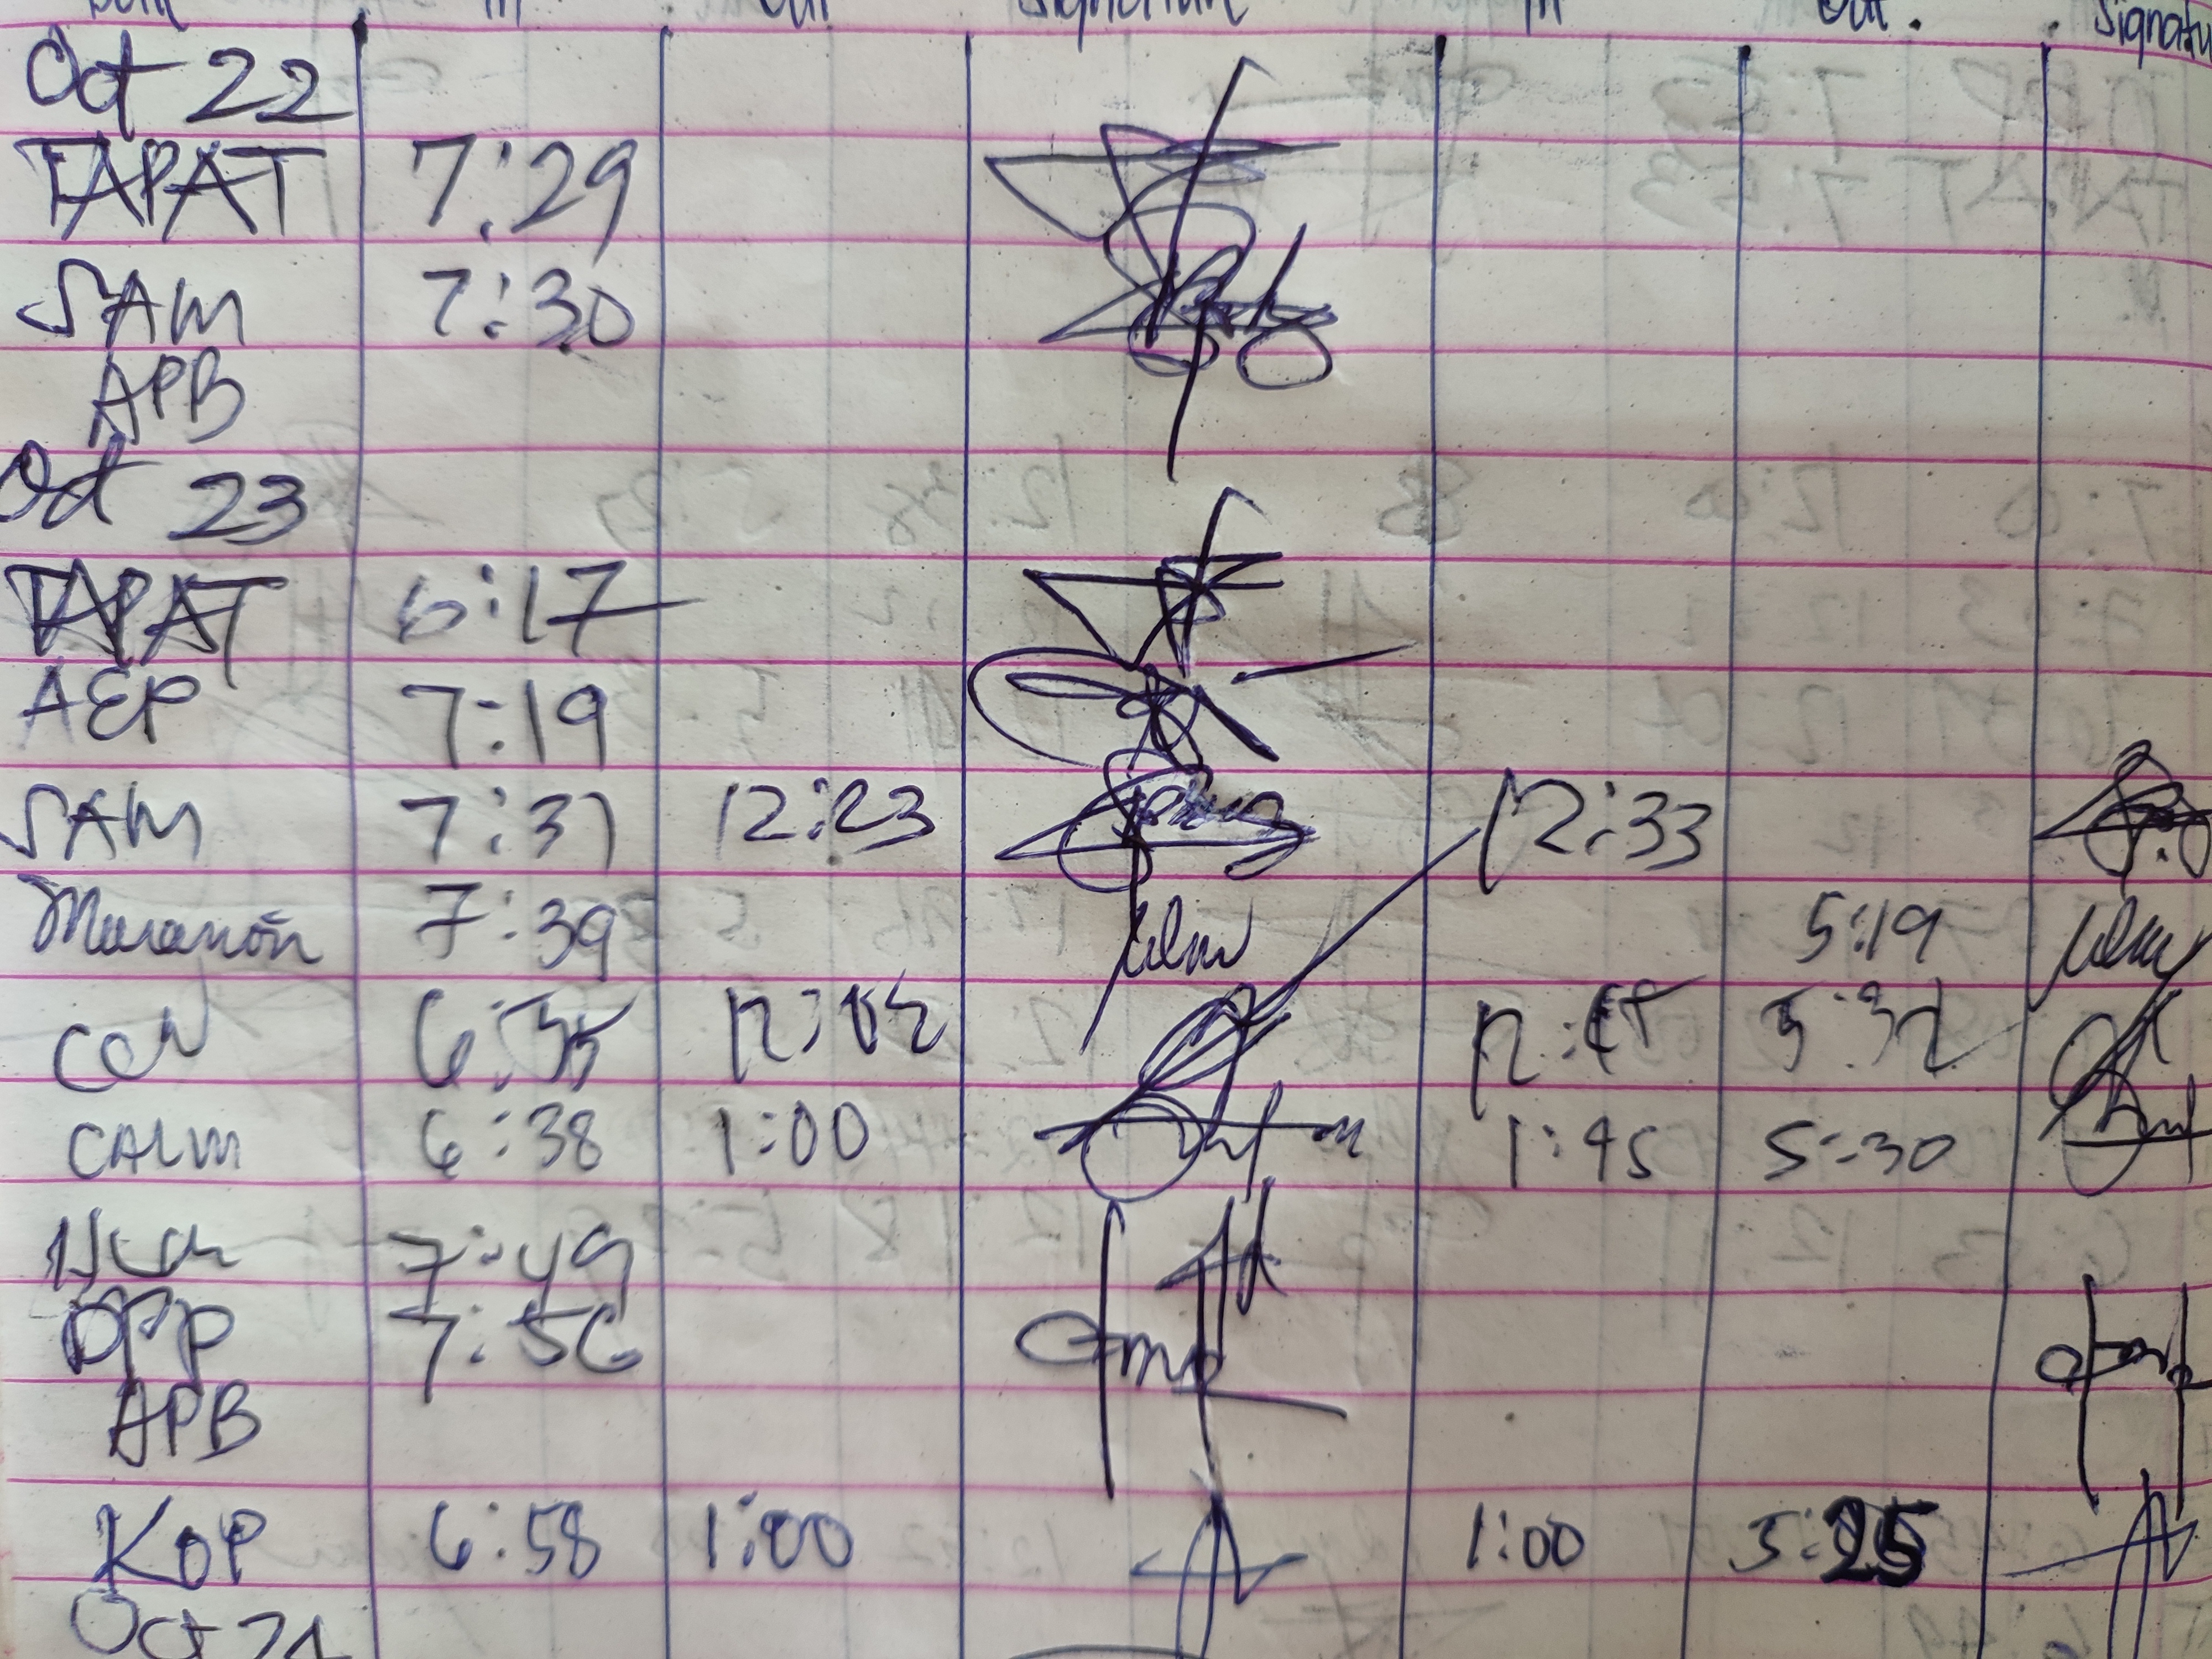 in out Signature in out. Signatu
Oct 22
TAPAT 7:29
SAM 7:30
APB
Oct 23
TAPAT 6:17
AEP 7:19
SAM 7:31 12:23 12:33
Marañon 7:39 5:19
6:35 5:32
CALM 6:38 1:00 1:45 5:30
7:49
DPP 7:56
APB
KOP 6:58 1:00 1:00 5:25
Oct 24